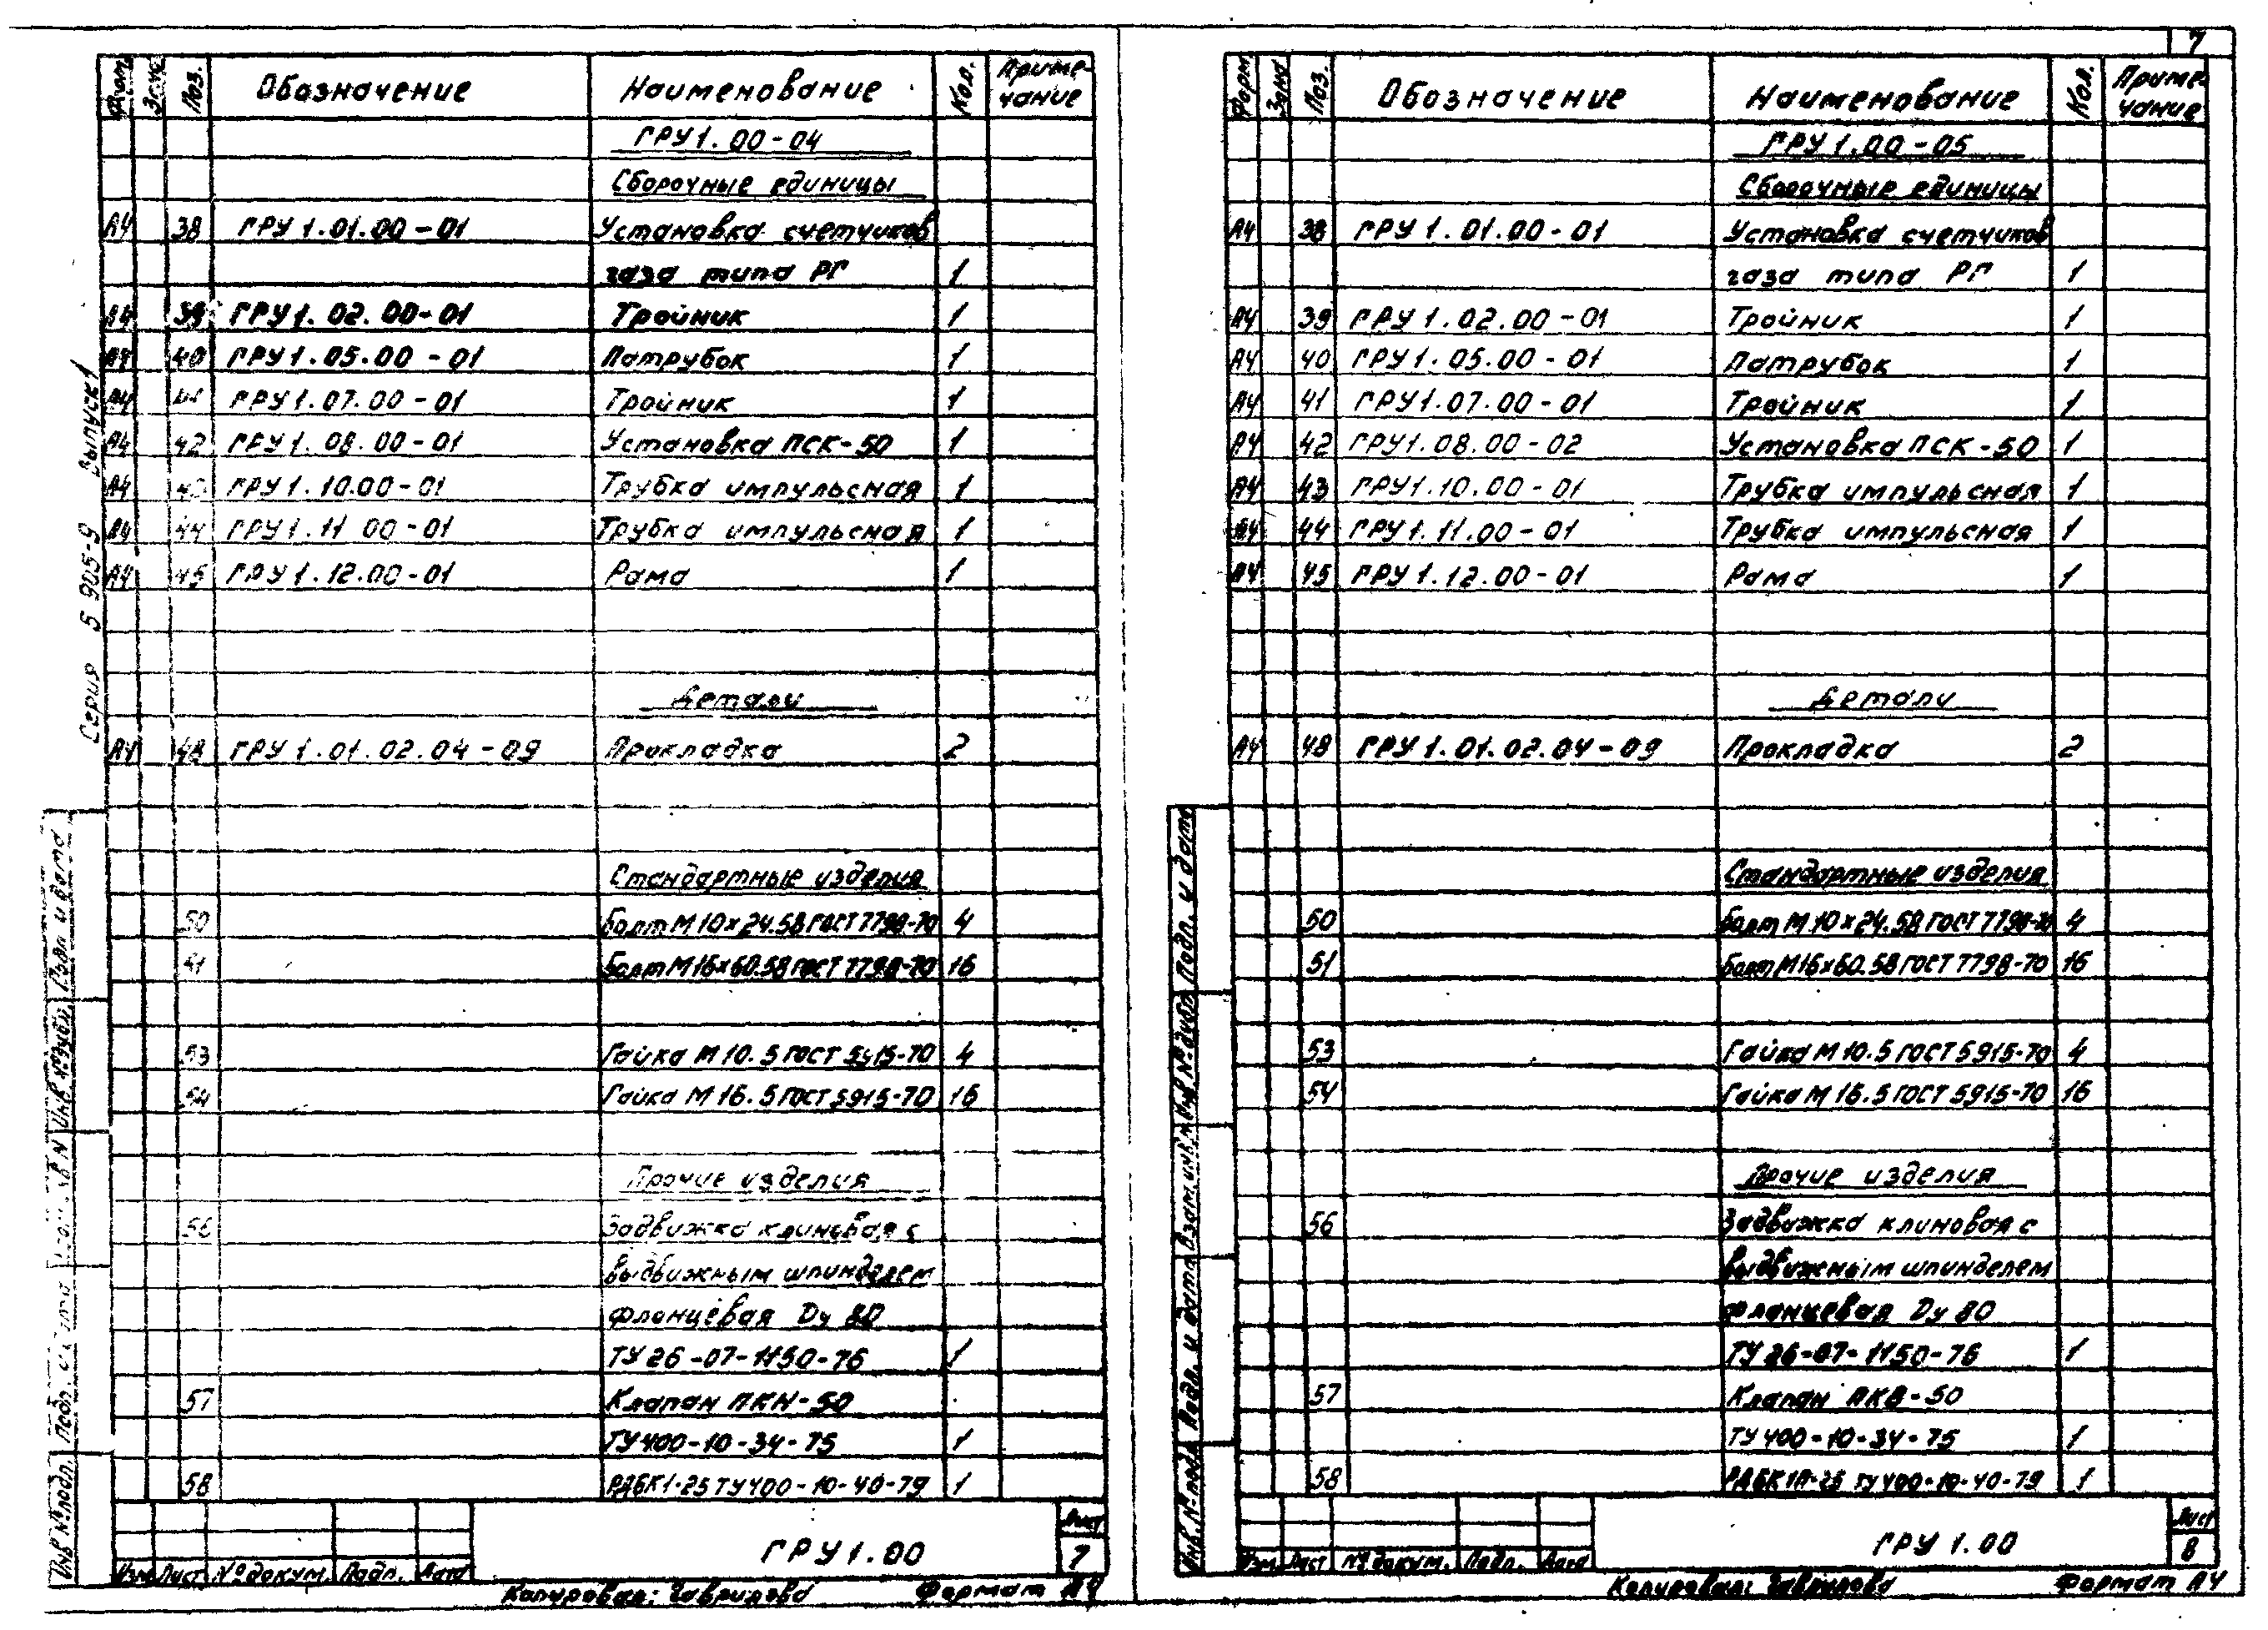 7
Серия 5 905-9 Выпуск 1
Форм. Зона Поз. Обозначение Наименование Кол. Приме-
чание
ГРУ 1.00-04
Сборочные единицы
А4 38 ГРУ 1.01.00-01 Установка счетчиков
газа типа РГ 1
А4 39 ГРУ 1.02.00-01 Тройник 1
А4 40 ГРУ 1.05.00-01 Патрубок 1
А4 41 ГРУ 1.07.00-01 Тройник 1
А4 42 ГРУ 1.08.00-01 Установка ПСК-50 1
А4 43 ГРУ 1.10.00-01 Трубка импульсная 1
А4 44 ГРУ 1.11 00-01 Трубка импульсная 1
А4 45 ГРУ 1.12.00-01 Рама 1
Детали
А4 48 ГРУ 1.01.02.04-09 Прокладка 2
Стандартные изделия
50 Болт М10х24.58 ГОСТ 7798-70 4
51 Болт М16х60.58 ГОСТ 7798-70 16
53 Гайка М10.5 ГОСТ 5915-70 4
54 Гайка М16.5 ГОСТ 5915-70 16
Прочие изделия
56 Задвижка клиновая с
выдвижным шпинделем
фланцевая Dy 80
ТУ 26-07-1150-76 1
57 Клапан ПКН-50
ТУ 400-10-34-75 1
58 РДБК1-25 ТУ 400-10-40-79 1
Инв № подл. Подп. и дата Инв № дубл Подп и дата
Изм Лист № докум. Подп. Дата
ГРУ 1.00
Лист
7
Копировал: Гаврилова Формат А4
Форм Зона Поз. Обозначение Наименование Кол. Приме-
чание
ГРУ 1.00-05
Сборочные единицы
А4 38 ГРУ 1.01.00-01 Установка счетчиков
газа типа РГ 1
А4 39 ГРУ 1.02.00-01 Тройник 1
А4 40 ГРУ 1.05.00-01 Патрубок 1
А4 41 ГРУ 1.07.00-01 Тройник 1
А4 42 ГРУ 1.08.00-02 Установка ПСК-50 1
А4 43 ГРУ 1.10.00-01 Трубка импульсная 1
А4 44 ГРУ 1.11.00-01 Трубка импульсная 1
А4 45 ГРУ 1.12.00-01 Рама 1
Детали
А4 48 ГРУ 1.01.02.04-09 Прокладка 2
Стандартные изделия
50 Болт М10х24.58 ГОСТ 7798-70 4
51 Болт М16х60.58 ГОСТ 7798-70 16
53 Гайка М10.5 ГОСТ 5915-70 4
54 Гайка М16.5 ГОСТ 5915-70 16
Прочие изделия
56 Задвижка клиновая с
выдвижным шпинделем
фланцевая Dy 80
ТУ 26-07-1150-76 1
57 Клапан ПКВ-50
ТУ 400-10-34-75 1
58 РДБК1П-25 ТУ 400-10-40-79 1
Инв. № подл Подп. и дата Взам. инв. № Инв № дубл Подп. и дата
Изм Лист № докум. Подп. Дата
ГРУ 1.00
Лист
8
Копировал: Гаврилова Формат А4